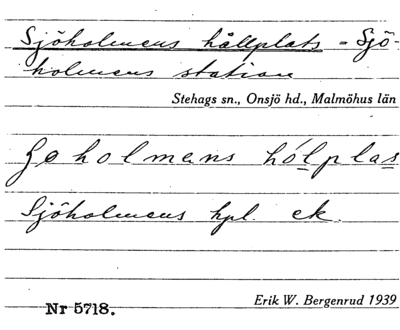 Sjöholmens hållplats = Sjö-
holmens station
Stehags sn., Onsjö hd., Malmöhus län
holmens hólplas
Sjöholmens hpl. ek.
Erik W. Bergenrud 1939
Nr 5718.